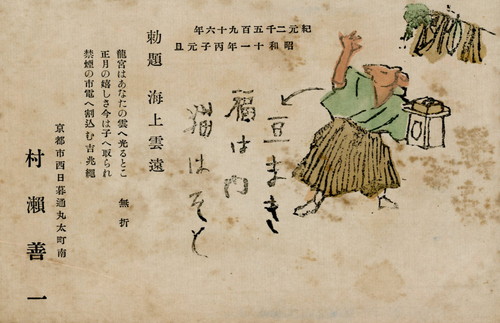 紀元二千五百九十六年
昭和十一年丙子元旦
豆まき
福は内
猫はそと
勅題 海上雲遠
龍宮はあなたの雲へ光るとこ 無折
正月の嬉しさ今は子へ取られ
禁煙の市電へ割込む吉兆縄
京都市西日暮通丸太町南
村瀬善一